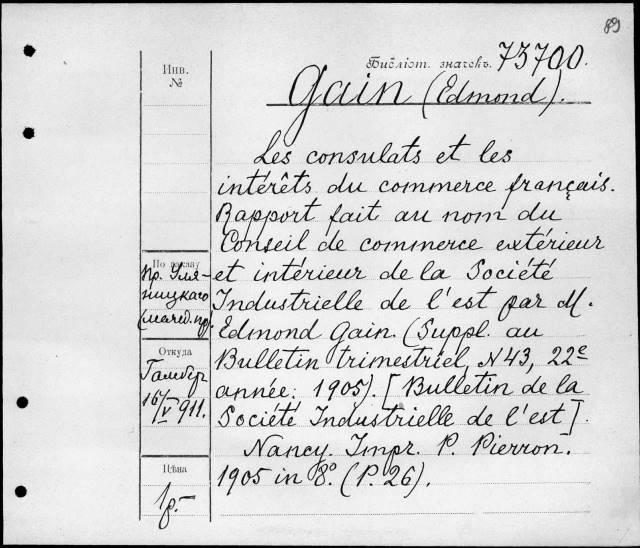 89
Библіот. значекъ. 73700.
Gain (Edmond).
Les consulats et les
intérêts du commerce français.
Rapport fait au nom du
Conseil de commerce extérieur
et intérieur de la Société
Industrielle de l'est par M.
Edmond Gain. (Suppl. au
Bulletin trimestriel, N43, 22e
année: 1905). [Bulletin de la
Société Industrielle de l'est].
Nancy. Impr. P. Pierron.
1905 in 8º. (P. 26).
Инв.
№
По заказу
Пр. Уля-
ницкаго
Откуда
16/V 911.
Цѣна
1р.-